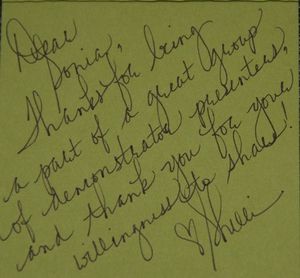 Dear
Thanks for being
a part of a great group
of demonstrator presenters,
and thank you for your
willingness to share!